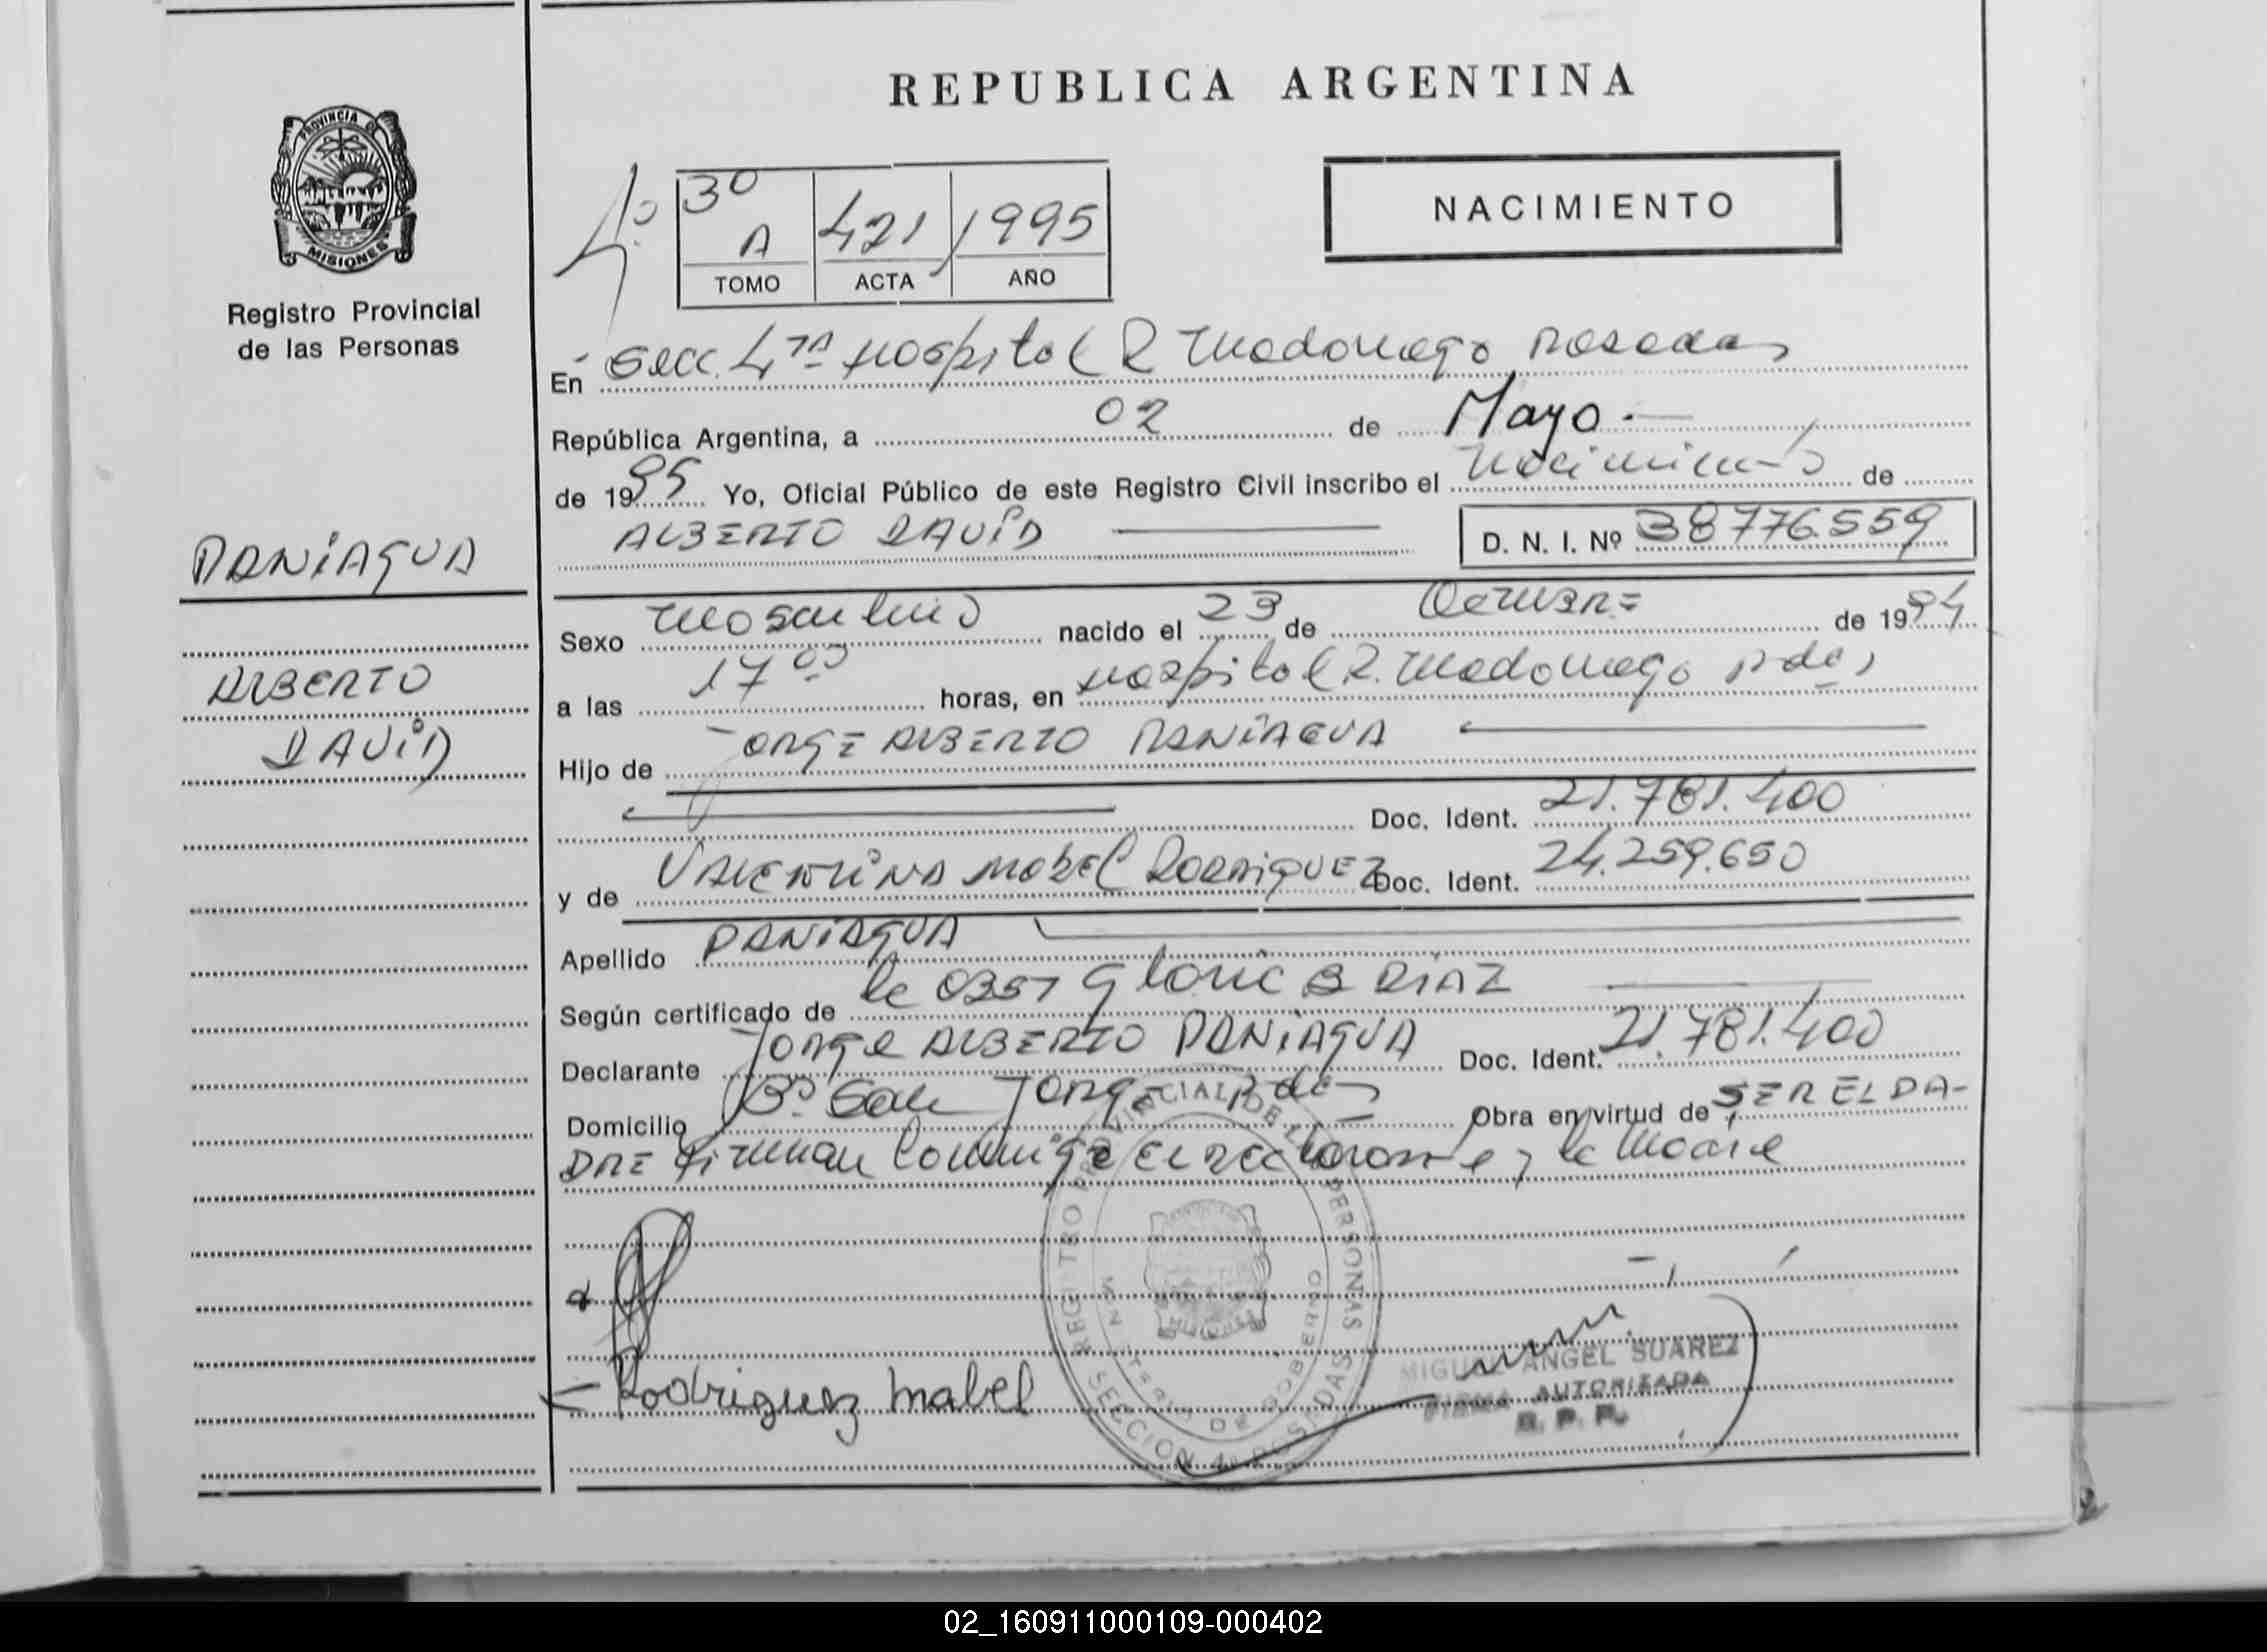 REPUBLICA ARGENTINA
PROVINCIA DE
MISIONES
Registro Provincial
de las Personas
4º
3º
A 421 1995
TOMO ACTA AÑO
NACIMIENTO
En Secc. 4ta Hospital R Madariaga Posadas
República Argentina, a 02 de Mayo.
de 1995 Yo, Oficial Público de este Registro Civil inscribo el Nacimiento de
ALBERTO DAVID D. N. I. Nº 38776.559
PANIAGUA
ALBERTO
DAVID
Sexo Masculino nacido el 23 de OCTUBRE de 1994
a las 17 00 horas, en Hospital R. Madariaga Pdas
Hijo de JORGE ALBERTO PANIAGUA
Doc. Ident. 21.781.400
y de VALENTINA MABEL RODRIGUEZ Doc. Ident. 24.259.650
Apellido PANIAGUA
Según certificado de la Gloria B DIAZ
Declarante Jorge ALBERTO PANIAGUA Doc. Ident. 21.781.400
Domicilio Bº San JORGE Pdas Obra en virtud de SER EL PA-
DRE Firman Conmigo el declarante y la Madre
REGISTRO PROVINCIAL DE LAS PERSONAS
MINISTERIO DE GOBIERNO
SECCION 4ª POSADAS
Rodriguez Mabel
MIGUEL ANGEL SUAREZ
FIRMA AUTORIZADA
R. P. P.
02_160911000109-000402